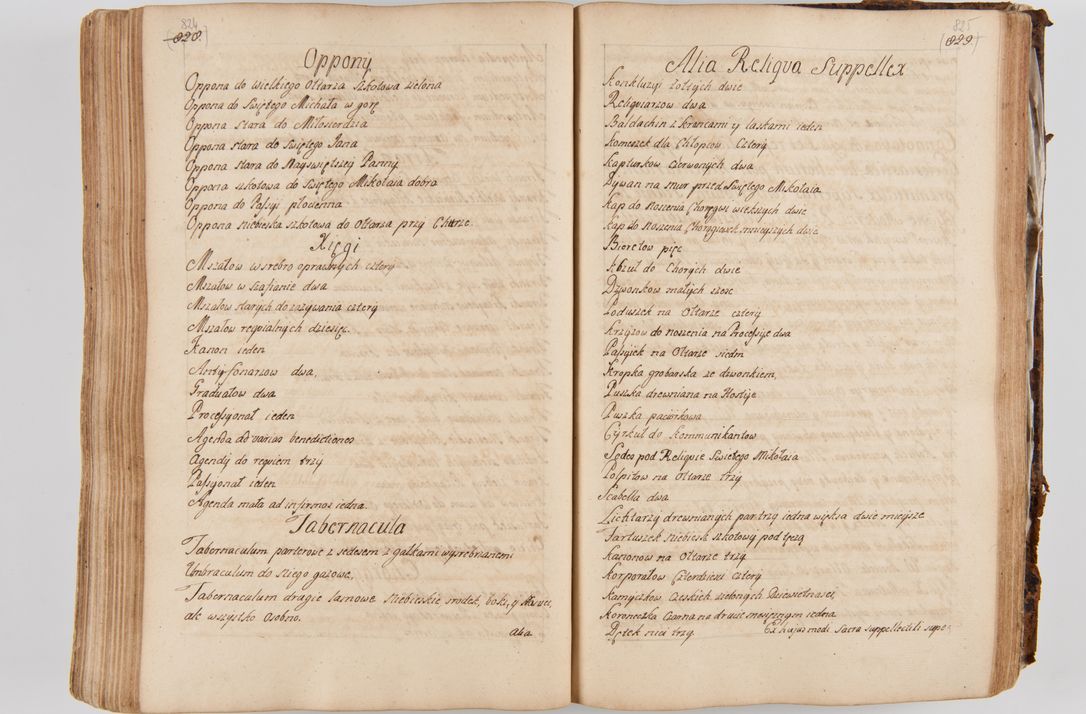 824
828.
Oppony
Oppona do wielkiego Ołtarza szkołowa zielona
Oppona do Swiętego Michała w górę
Oppona stara do Miłosierdzia
Oppona stara do Swiętego Jana
Oppona stara do Nayświętszey Panny
Oppona szkołowa do Swiętego Mikołaia dobra
Oppona do Passyi płocienna
Oppona niebieska szkołowa do Ołtarza przy Chórze.
Xięgi
Mszałow w srebro oprawnych cztery
Mszałow w szafianie dwa
Mszałow starych do zazywania cztery
Mszałow requialnych dziesięć.
Kanon ieden
Antyfonarzow dwa,
Graduałow dwa
Processyonał ieden
Agenda ad varias benedictiones
Agendy do requiem trzy
Passyonał ieden
Agenda mała ad infirmos iedna.
Tabernacula
Tabernaculum parterowe z sedesem z gałkami wysrebrzanemi
Umbraculum do niego gazowe,
Tabernaculum drugie lamowe niebieskie srodek, boki, y
ale wszystko osobno.
Alia
825
829.
Alia Reliqva Suppellex
Konkluzyi żołtych dwie
Reliquiarzow dwa
Baldachin z krancami y laskami ieden
Komeszek dla Chłopcow cztery
Kapturkow czerwonych dwa
Dywan na mur przed Swiętego Mikołaia
Kap do noszenia Choręgwi większych dwie
Kap do noszenia Chorągiewek mnieyszych dwie
Bieretow pięć
Abzut do Chorych dwie
Dzwonkow małych szesc
Poduszek na Ołtarze cztery
Krzyżow do noszenia na Processyie dwa
Passyiek na Ołtarze siedm
Kropka grobarska ze dzwonkiem,
Puszka drewniana na Hostyie
Puszka pacierkowa
Cyrkuł do kommunikantow
Sedes pod Reliquie Swiętego Mikołaia
Polpitow na Ołtarze trzy
Scabella dwa
Lichtarzy drewnianych par trzy iedna większa dwie mnieysze
Fartuszek niebieski szkołowy pod tęczą
Kanonow na Ołtarze trzy
Korporałow czterdziesci cztery
Kamyczkow Czeskich zielonych dziewietnascie,
Koroneczka czarna na drucie mosięznym iedna
Pętek nici trzy. Ex hujus modi Sacra suppellectili supe-